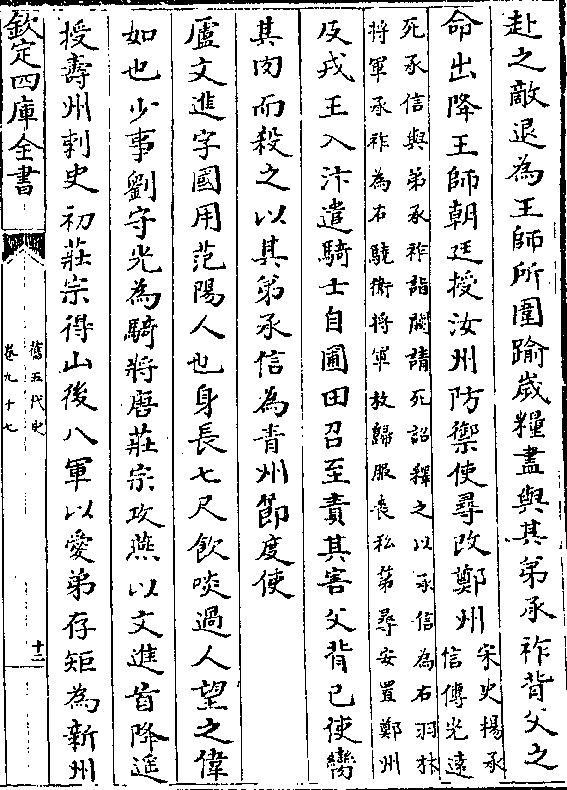 赴之敵退為王師所圍踰歲糧盡與其弟承祚背父之
命出降王師朝廷授汝州防禦使尋改鄭州宋史楊承
信傳光遠
死承信與弟承祚詣闕請死詔釋之以承信為右羽林
將軍承祚為右驍衛將軍放歸服喪私第尋安置鄭州
及戎王入汴遣騎士自圃田召至責其害父背己使臠
其肉而殺之以其弟承信為青州節度使
盧文進字國用范陽人也身長七尺飲啖過人望之偉
如也少事劉守光為騎將唐莊宗攻燕以文進首降遥
授壽州刺史初莊宗得山後八軍以愛弟存矩為新州
欽定四庫全書
舊五代史
卷九十七
十二